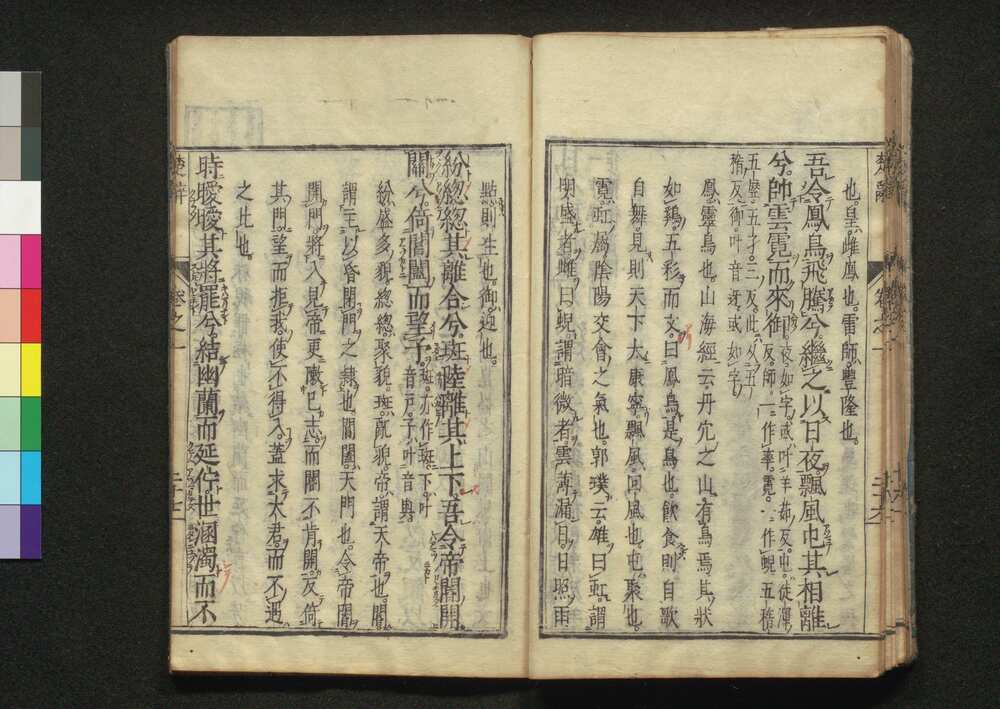 也皇雌鳳也雷師豐隆也
吾令鳳鳥飛騰兮繼之以日夜飄風屯其相離
兮帥雲霓而來御夜如字或叶羊茹反屯徒渾反師一作率霓一作蜺五稽
五歷五才三反此以五稽反御叶音迓或如字
鳳靈鳥也山海經云丹穴之山有鳥焉其狀
如鷄五彩而文曰鳳鳥是鳥也飲食則自歌
自舞見則天下大康寧飄風回風也屯聚也
霓虹屬陰陽交會之氣也郭璞云雄曰虹謂
明盛者雌曰蜺謂暗微者雲薄漏日日照雨
點則生也御迎也
紛總總其離合兮斑陸離其上下吾令帝閽開
關兮倚閶闔而望予斑亦作班下叶音戶予叶音與
紛盛多貌總總聚貌斑亂貌帝謂天帝也閽
謂主以昏閉門之隸也閶闔天門也令帝閽
開門將入見帝更陳己志而閽不肯開反倚
其門望而拒我使不得入蓋求大君而不遇
之比也
時曖曖其將罷兮結幽蘭而延佇世溷濁而不
楚辭
卷之一